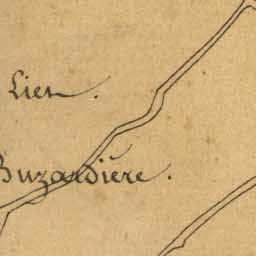 Lien.
Buzardière.